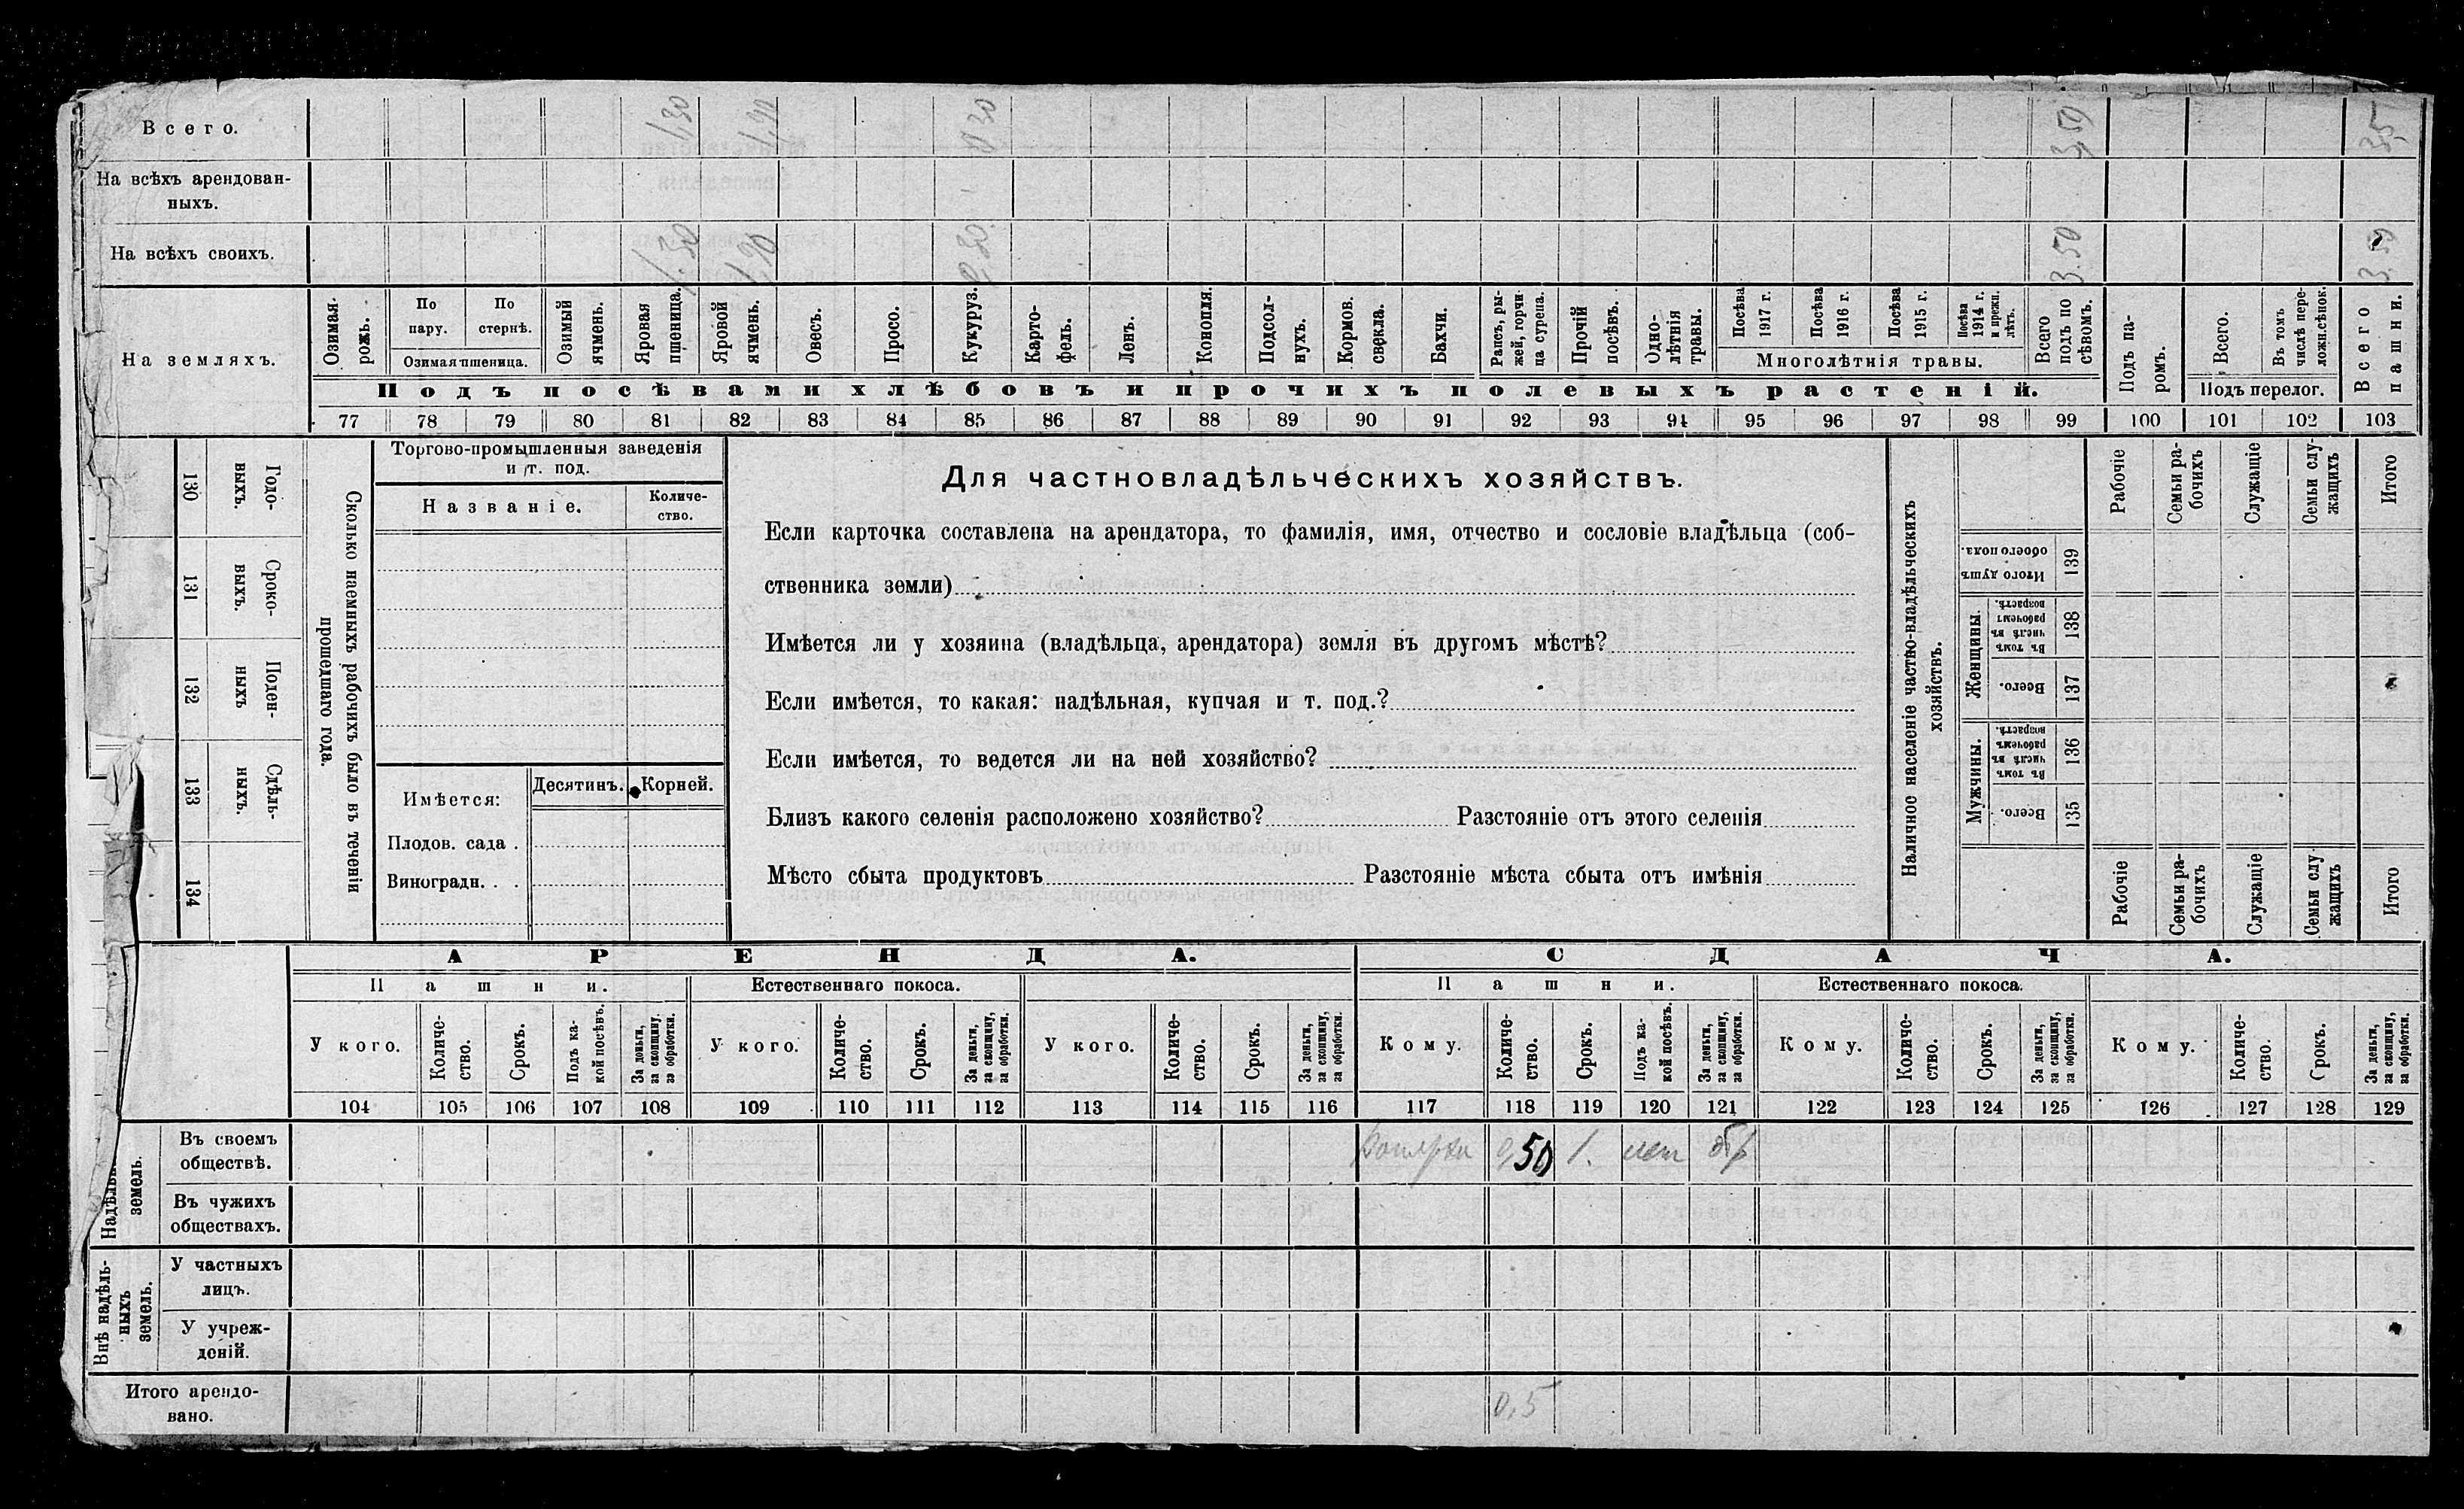 Всего. 1,30 1,90 0 30 3,50 3,5
На всѣхъ арендован-
ныхъ.
На всѣхъ своихъ. 3.50 3.50
На земляхъ.
Озимая рожь.
По пару.
По стернѣ.
Озимая пшеница.
Озимый ячмень.
Яровая пшеница.
Яровой ячмень.
Овесъ.
Просо.
Кукуруз.
Карто-
фель.
Ленъ.
Конопля.
Подсол-
нухъ.
Кормов.
свекла.
Бахчи.
Рапсъ, ры-
жей, горчи
ца сурепа.
Прочій
посѣвъ.
Одно-
лѣтнія
травы.
Посѣва
1917 г.
Посѣва
1916 г.
Посѣва
1915 г.
Посѣва
1914 г.
и прежн.
лѣтъ.
Многолѣтнія травы.
Всего
подъ по
сѣвомъ.
Подъ посѣвами хлѣбовъ и прочихъ полевыхъ растеній.
Подъ па-
ромъ.
Всего.
Въ томъ
числѣ пере-
ложн.сѣнок.
Подъ перелог.
Всего
пашни.
77 78 79 80 81 82 83 84 85 86 87 88 89 90 91 92 93 94 95 96 97 98 99 100 101 102 103
130 Годо-
выхъ.
131 Сроко-
выхъ.
132 Поден-
ныхъ
133 Сдѣль-
ныхъ.
134
Сколько наемныхъ рабочихъ было въ теченіи
прошедшаго года.
Торгово-промышленныя заведенія
и т. под.
Названіе.
Количе-
ство.
Имѣется:
Десятинъ. Корней.
Плодов. сада .
Виноградн. . .
Для частновладѣльческихъ хозяйствъ.
Если карточка составлена на арендатора, то фамилія, имя, отчество и сословіе владѣльца (соб-
ственника земли)
Имѣется ли у хозяина (владѣльца, арендатора) земля въ другомъ мѣстѣ?
Если имѣется, то какая: надѣльная, купчая и т. под.?
Если имѣется, то ведется ли на ней хозяйство?
Близъ какого селенія расположено хозяйство? Разстояніе отъ этого селенія
Мѣсто сбыта продуктовъ Разстояніе мѣста сбыта отъ имѣнія
Наличное населеніе частно-владѣльческихъ
хозяйствъ.
Рабочіе
Семьи ра-
бочихъ
Служащіе
Семьи слу-
жащихъ
Итого
Итого душъ
обоего пола.
139
Женщины.
Въ томъ
числѣ въ
рабочемъ
возрастѣ.
138
Всего.
137
Мужчины.
Въ томъ
числѣ въ
рабочемъ
возрастѣ.
136
Всего.
135
Рабочіе
Семьи ра-
бочихъ
Служащіе
Семьи слу
жащихъ
Итого
АРЕНДА. СДАЧА.
Пашни. Естественнаго покоса. Пашни. Естественнаго покоса.
У кого.
Количе-
ство.
Срокъ.
Подъ ка-
кой посѣвъ.
За деньги,
за скопщину,
за обработки.
У кого.
Количе-
ство.
Срокъ.
За деньги,
за скопщину,
за обработки.
У кого.
Количе-
ство.
Срокъ.
За деньги,
за скопщину,
за обработки.
Кому.
Количе-
ство.
Срокъ.
Подъ ка-
кой посѣвъ.
За деньги,
за скопщину,
за обработки.
Кому.
Количе-
ство.
Срокъ.
За деньги,
за скопщину,
за обработки.
Кому.
Количе-
ство.
Срокъ.
За деньги,
за скопщину,
за обработки.
104 105 106 107 108 109 110 111 112 113 114 115 116 117 118 119 120 121 122 123 124 125 126 127 128 129
Надѣльн.
земель.
Въ своемъ
обществѣ. 0,50 1.
Въ чужихъ
обществахъ.
Внѣ надѣль-
ныхъ
земель.
У частныхъ
лицъ.
У учреж-
деній.
Итого арендо-
вано. 0,5